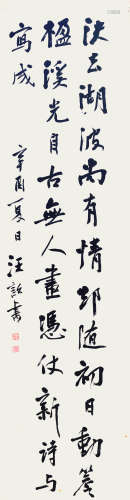 決去湖波尚有情卻隨初日動簷
楹溪光自古無人畫憑仗新詩與
寫成
辛酉夏日汪書